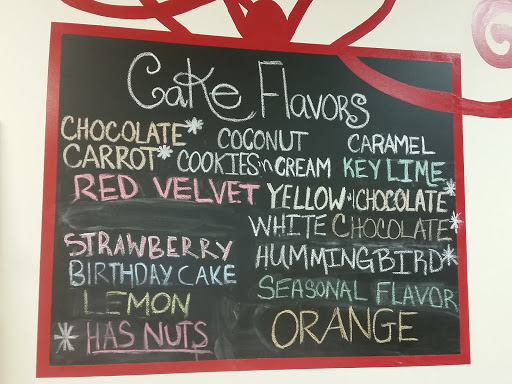 Cake Flavors
CHOCOLATE* COCONUT CARAMEL
CARROT* COOKIES 'n CREAM KEY LIME
RED VELVET YELLOW + CHOCOLATE*
WHITE CHOCOLATE*
STRAWBERRY HUMMINGBIRD*
BIRTHDAY CAKE SEASONAL FLAVOR
LEMON ORANGE
* HAS NUTS